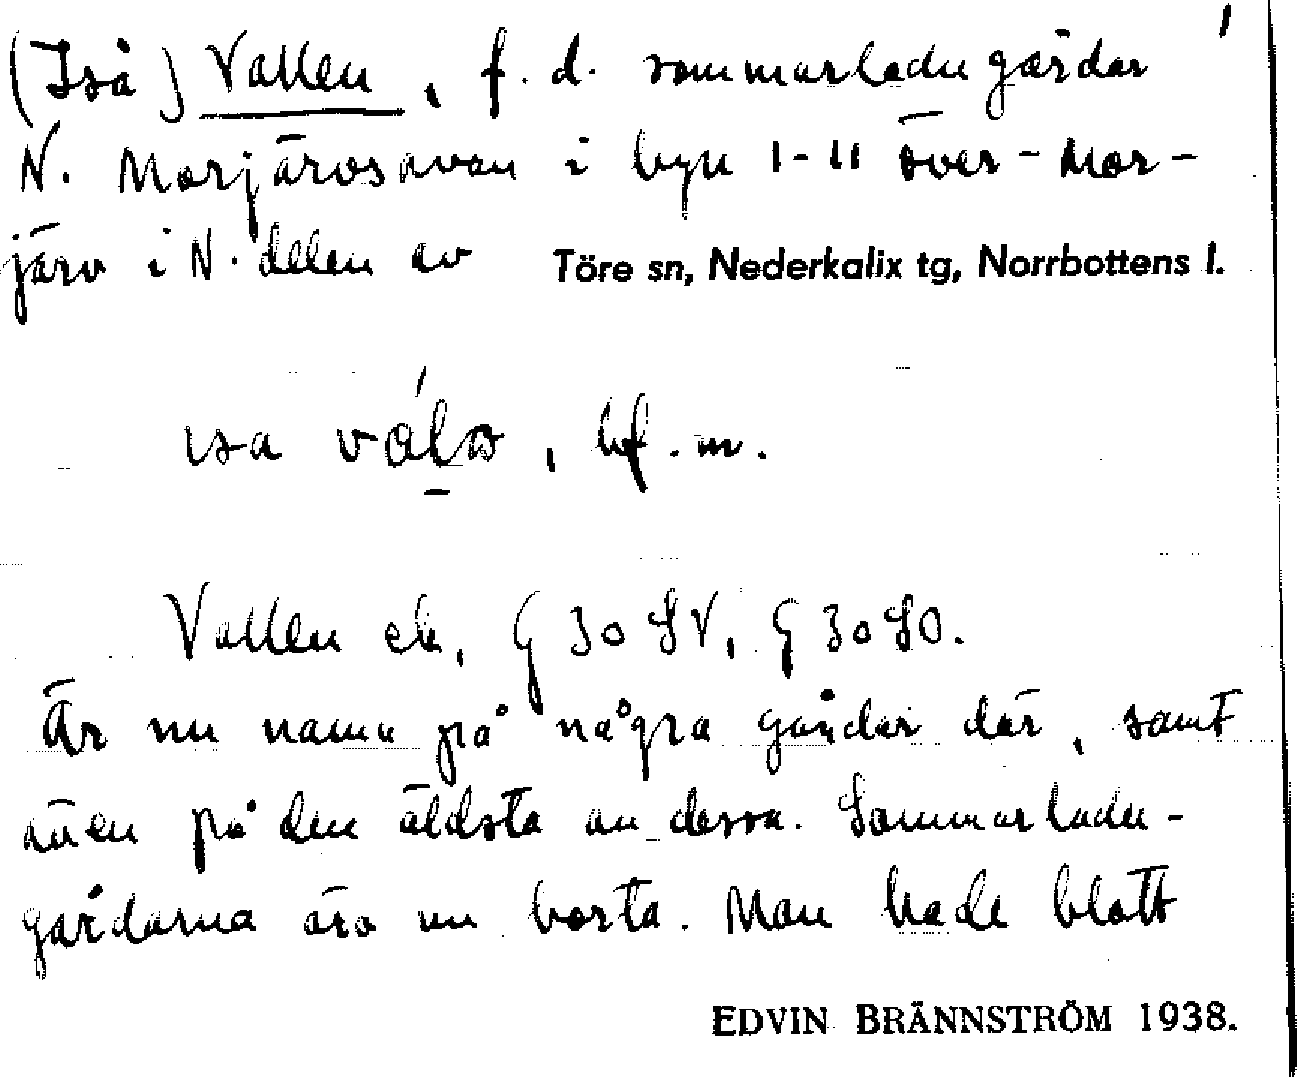 (Iså) Vallen, f.d. sommarladugårdar
N. Morjärvsavan i byn 1-11 över-Mor-
järv i N. delen av Töre sn, Nederkalix tg, Norrbottens l.
bf.m.
Vallen ek, G 30 SV, G 30 SO.
Är nu namn på några gårdar där, samt
även på den äldsta av dessa. Sommarladu-
gårdarna äro nu borta. Man hade blott
EDVIN BRÄNNSTRÖM 1938.